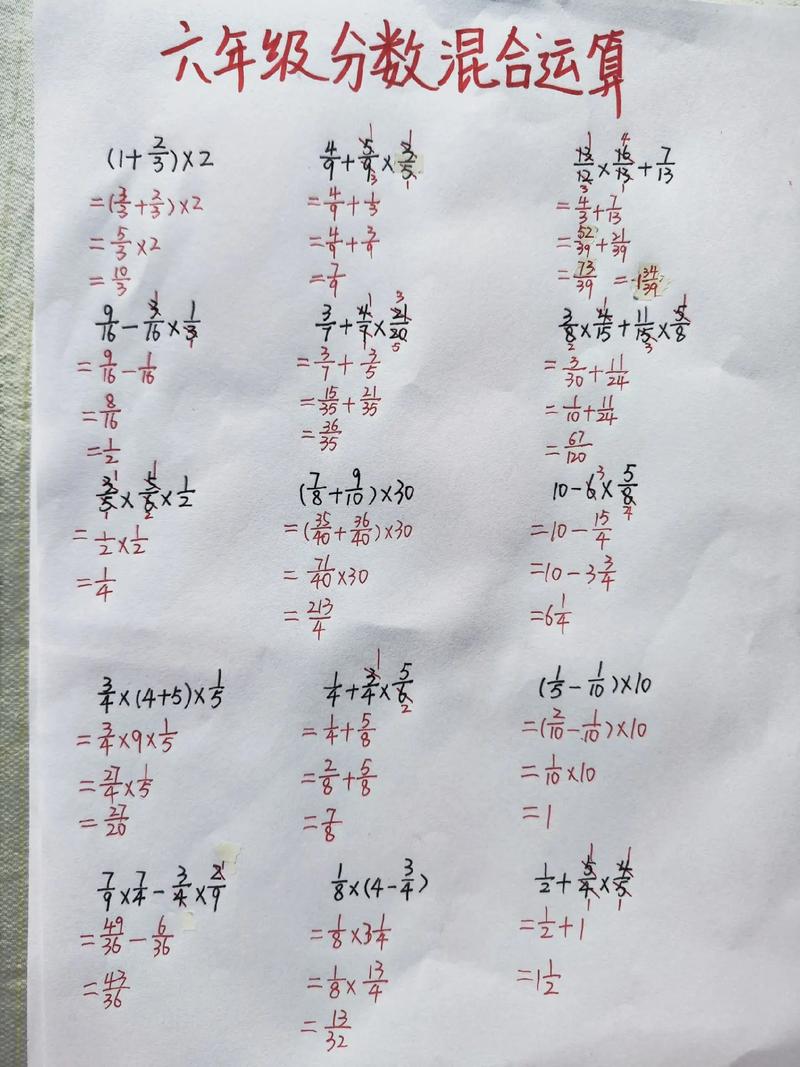 六年级分数混合运算
(1+2/3)×2
=(3/3+2/3)×2
=5/3×2
=10/3
4/9+5/9×3/5
=4/9+1/3
=4/9+3/9
=7/9
13/12×16/13+7/13
=4/3+7/13
=52/39+21/39
=73/39 =1 34/39
9/16-3/16×1/3
=9/16-1/16
=8/16
=1/2
3/7+4/7×21/20
=3/7+3/5
=15/35+21/35
=36/35
3/8×4/15+11/15×5/8
=3/30+11/24
=1/10+11/24
=67/120
3/5×5/6×1/2
=1/2×1/2
=1/4
(7/8+9/10)×30
=(35/40+36/40)×30
=71/40×30
=213/4
10-6×5/8
=10-15/4
=10-3 3/4
=6 1/4
3/4×(4+5)×1/5
=3/4×9×1/5
=27/4×1/5
=27/20
1/4+3/4×5/6
=1/4+5/8
=2/8+5/8
=7/8
(1/5-1/10)×10
=(2/10-1/10)×10
=1/10×10
=1
7/9×7/4-3/4×2/9
=49/36-6/36
=43/36
1/8×(4-3/4)
=1/8×3 1/4
=1/8×13/4
=13/32
1/2+5/4×4/5
=1/2+1
=1 1/2